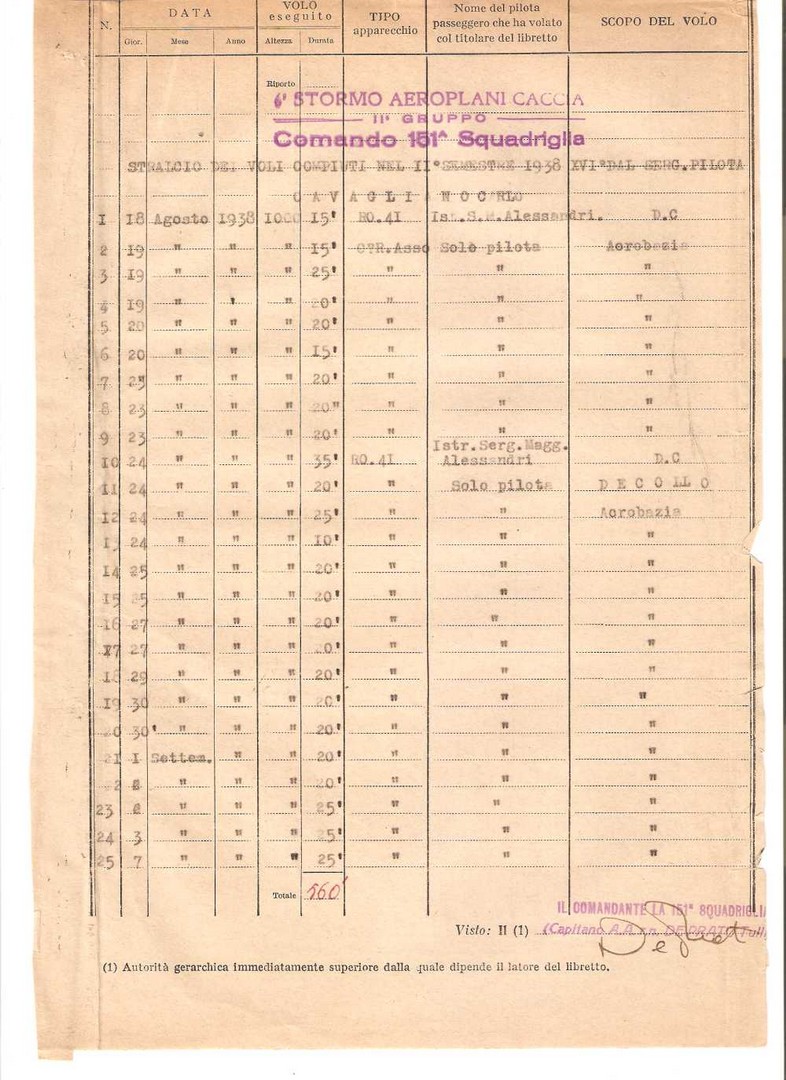 N. DATA VOLO eseguito TIPO apparecchio Nome del pilota passeggero che ha volato col titolare del libretto SCOPO DEL VOLO
Gior. Mese Anno Altezza Durata
Riporto
6° STORMO AEROPLANI CACCIA
II° GRUPPO
Comando 151^ Squadriglia
STRALCIO DEI VOLI COMPIUTI NEL II° SEMESTRE 1938 XVI° DAL SERG.PILOTA
CAVAGLIANO CARLO
1 18 Agosto 1938 1000 15' RO.41 Ist.S.M.Alessandri. D.C
2 19 " " " 15' C°R.Asso Solo pilota Acrobazia
3 19 " " " 25' " " "
4 19 " ' " 20' " " "
5 20 " " " 20' " " "
6 20 " " " 15' " " "
7 23 " " " 20' " " "
8 23 " " " 20" " " "
9 23 " " " 20' " " "
Istr.Serg.Magg.
10 24 " " " 35' RO.41 Alessandri D.C
11 24 " " " 20' " Solo pilota DECOLLO
12 24 " " " 25' " " Acrobazia
13 24 " " " 10' " " "
14 25 " " " 20' " " "
15 25 " " " 20' " " "
16 27 " " " 20' " " "
17 27 " " " 20' " " "
18 29 " " " 20' " " "
19 30 " " " 20' " " "
20 30' " " " 20' " " "
21 1 Settem. " " 20' " " "
22 2 " " " 20' " " "
23 2 " " " 25' " " "
24 3 " " " 25' " " "
25 7 " " " 25' " " "
Totale 560'
IL COMANDANTE LA 151^ SQUADRIGLIA
Visto: Il (1) (Capitano A.A.
(1) Autorità gerarchica immediatamente superiore dalla quale dipende il latore del libretto.